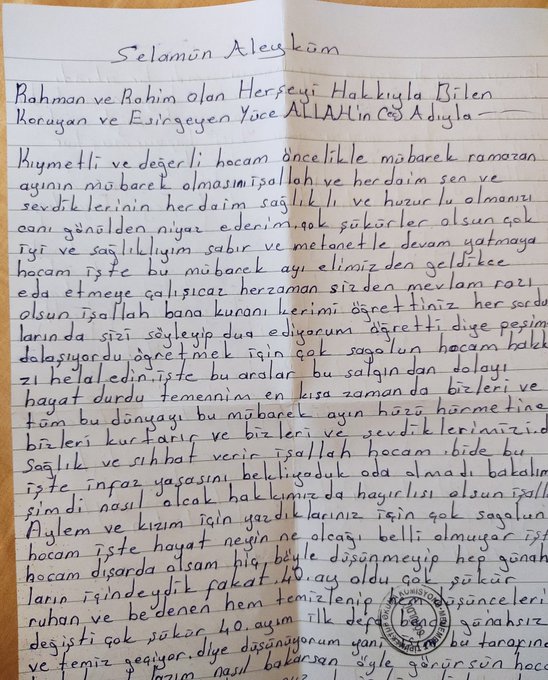 Selamün Aleyküm
Rahman ve Rahim olan Herşeyi Hakkıyla Bilen
Koruyan ve Esirgeyen Yüce ALLAH'ın (cc) Adıyla
Kıymetli ve değerli hocam öncelikle mübarek ramazan
ayının mübarek olmasını işallah ve herdaim sen ve
sevdiklerinin herdaim sağlıklı ve huzurlu olmanızı
canı gönülden niyaz ederim. çok şükürler olsun çok
iyi ve sağlıklıyım sabır ve metanetle devam yatmaya
hocam işte bu mübarek ayı elimizden geldikce
eda etmeye çalışıcaz herzaman sizden mevlam razı
olsun işallah bana kuranı kerimi öğrettiniz her sordu
larında sizi söyleyip dua ediyorum öğretti diye peşim
dolaşıyordu öğretmek için çok sagolun hocam hakk
zı helal edin. işte bu aralar bu salgından dolayı
hayat durdu temennim en kısa zamanda bizleri ve
tüm bu dünyayı bu mübarek ayın hürmetine
bizleri kurtarır ve bizleri ve sevdiklerimizi
sağlık ve sıhhat verir işallah hocam. bide bu
işte infaz yasasını bekliyaduk oda olmadı bakalım
şimdi nasıl olcak hakkımızda hayırlısı olsun işall
Aylem ve kızım için yazdıklarınız için çok sagolun
hocam işte hayat neyin ne olcağı belli olmuyor işt
hocam dışarda olsam hiç böyle düşünmeyip hep günah
ların içindeydik fakat. 40. ay oldu çok şükür
ruhan ve bedenen hem temizlenip düşünceleri
değişti çok şükür 40. ayım ilk defa bana günahsız
ve temiz geçiyor. diye düşünüyorum yani işte bu tarafın
lazım nasıl bakarsan öyle görürsün hoca